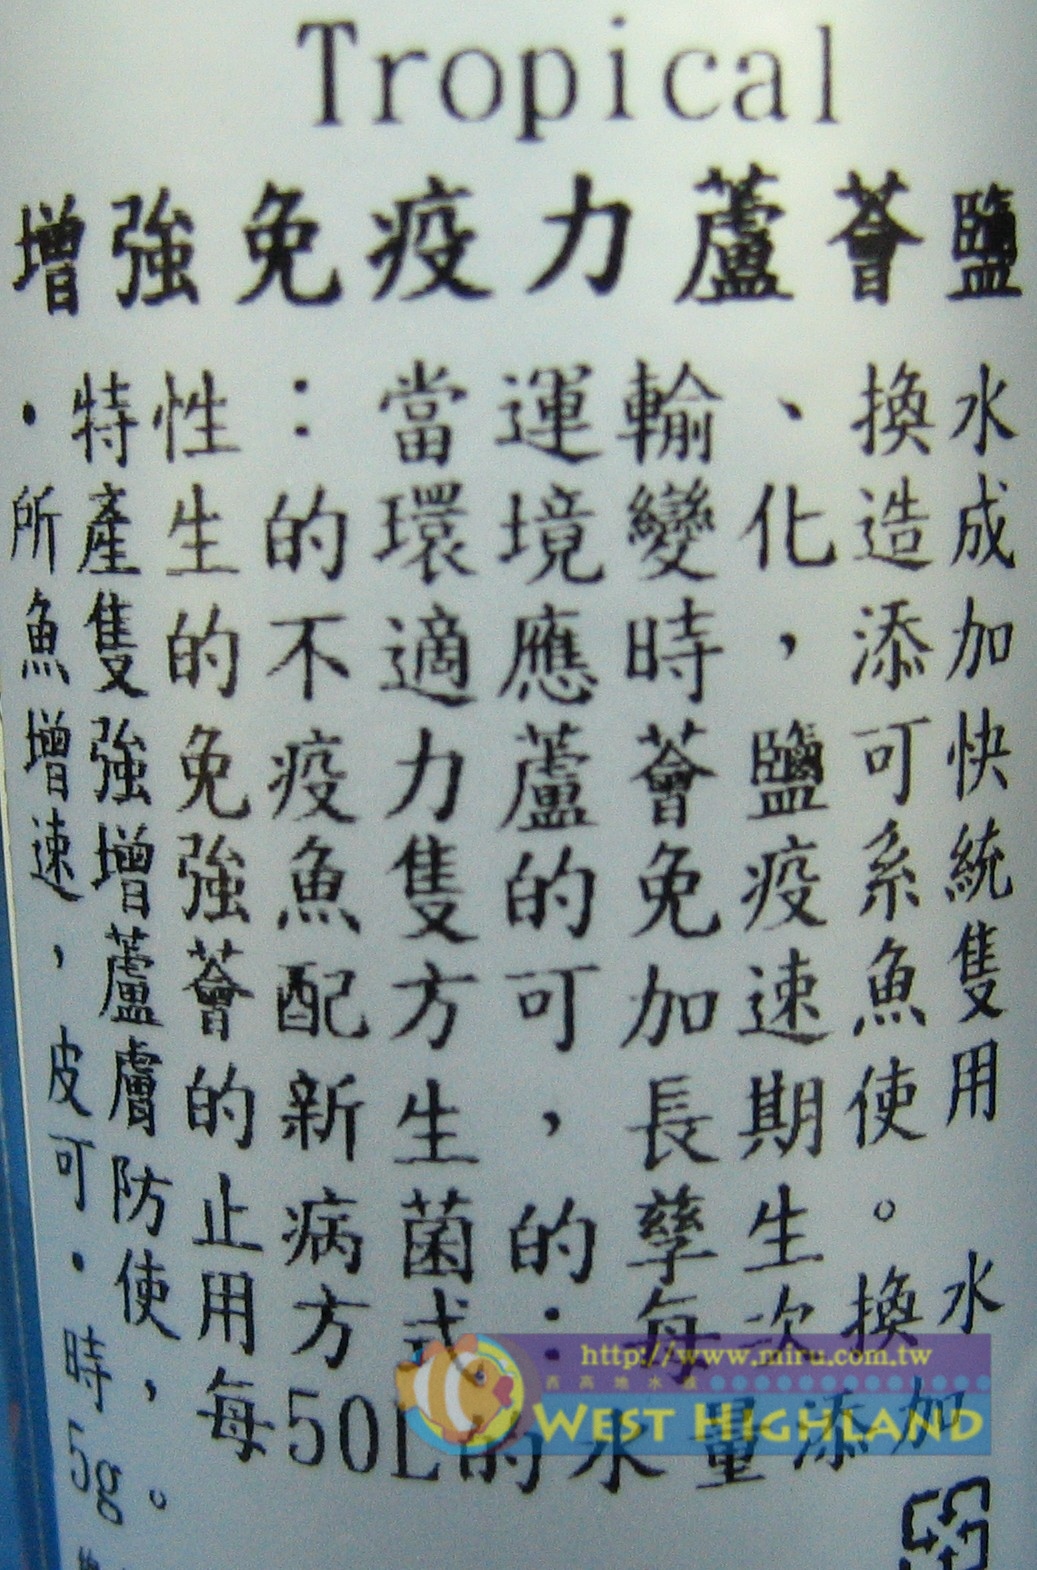 Tropical
增強免疫力蘆薈鹽
・特性：當運輸、換水
所產生的環境變化造成
魚隻的不適應時，添加
增強免疫力蘆薈鹽可快
速增強魚隻的免疫系統
，蘆薈配方可加速魚隻
皮膚的新生，長期使用
可防止病菌的孳生。
・使用方式：每次換水
時，每50L的水量添加
5g。
http://www.miru.com.tw
西高地水族
WEST HIGHLAND